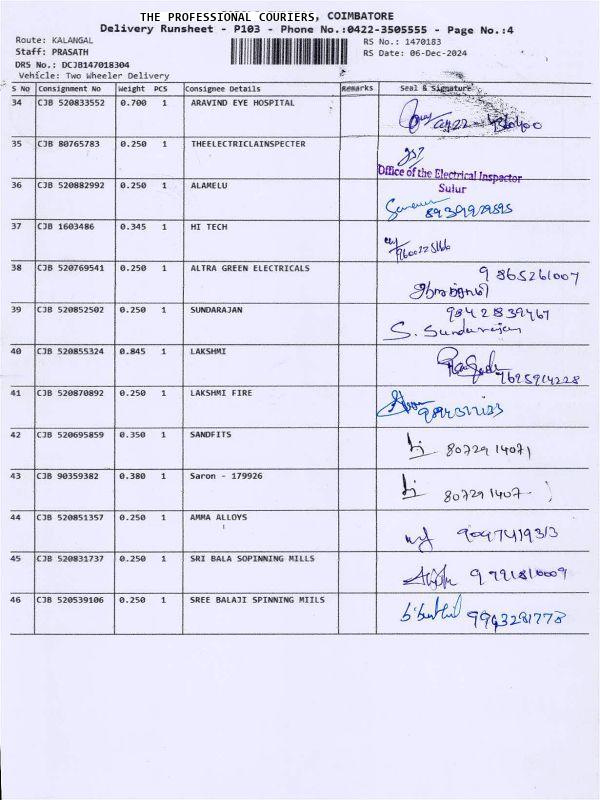 THE PROFESSIONAL COURIERS, COIMBATORE
Delivery Runsheet - P103 - Phone No.:0422-3505555 - Page No.:4
Route: KALANGAL
RS No.: 1470183
Staff: PRASATH
RS Date: 06-Dec-2024
DRS No.: DCJB147018304
Vehicle: Two Wheeler Delivery
S No Consignment No Weight PCS Consignee Details Remarks Seal & Signature
34 CJB 520833552 0.700 1 ARAVIND EYE HOSPITAL
35 CJB 80765783 0.250 1 THEELECTRICLAINSPECTER
Office of the Electrical Inspector
Sulur
36 CJB 520882992 0.250 1 ALAMELU
37 CJB 1603486 0.345 1 HI TECH
38 CJB 520769541 0.250 1 ALTRA GREEN ELECTRICALS 9865261007
39 CJB 520852502 0.250 1 SUNDARAJAN 9842839467
S. Sundarajan
40 CJB 520855324 0.845 1 LAKSHMI 7695914228
41 CJB 520870892 0.250 1 LAKSHMI FIRE
42 CJB 520695859 0.350 1 SANDFITS 8072914071
43 CJB 90359382 0.380 1 Saron - 179926 807291407-
44 CJB 520851357 0.250 1 AMMA ALLOYS 9047419313
45 CJB 520831737 0.250 1 SRI BALA SOPINNING MILLS 9791810009
46 CJB 520539106 0.250 1 SREE BALAJI SPINNING MIILS 9943281778